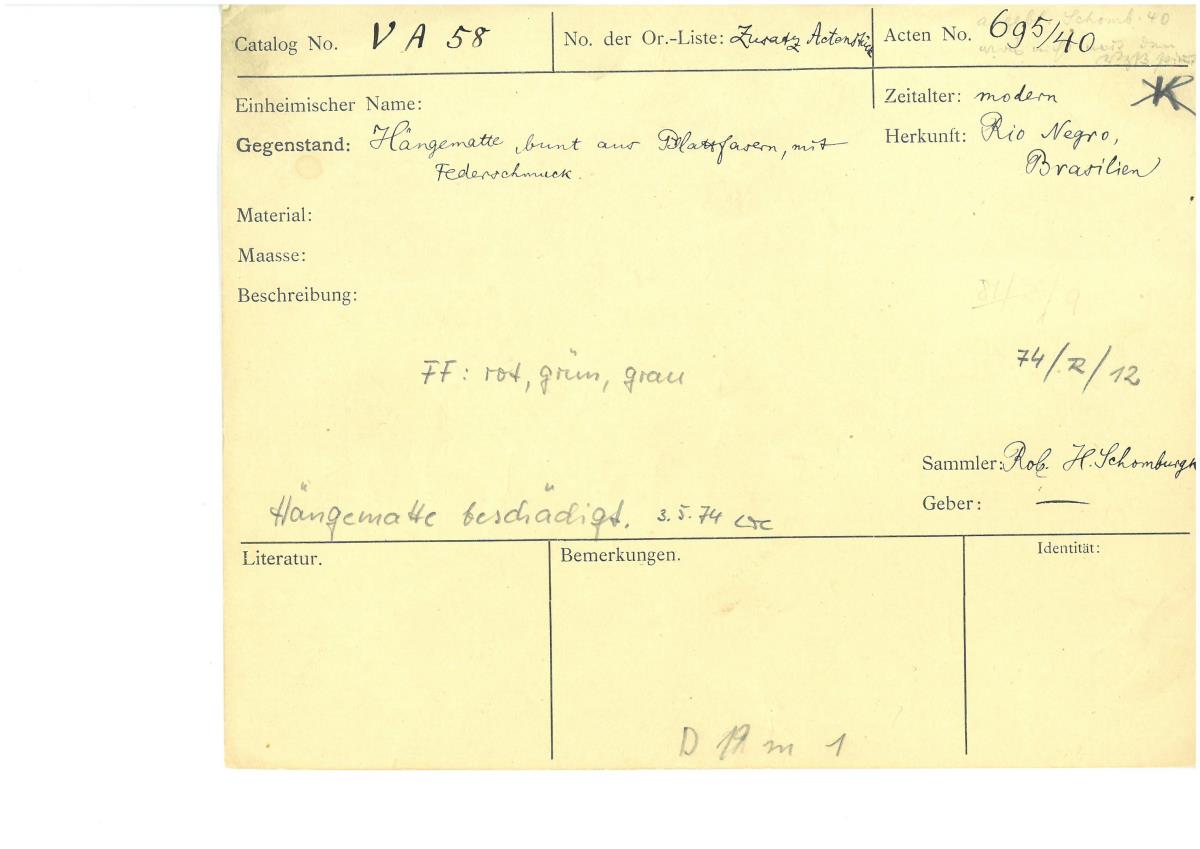 Catalog No. V A 58
No. der Or.-Liste: Zusatz Actenstück
Acten No. 695/40
Schomb. 40
Einheimischer Name:
Zeitalter: modern
K
Gegenstand: Hängematte, bunt aus Blattfasern, mit
Federschmuck.
Herkunft: Rio Negro,
Brasilien
Material:
Maasse:
Beschreibung:
FF: rot, grün, grau
74/R/12
Sammler: Rob. H. Schomburgk
Geber: —
Hängematte beschädigt. 3.5.74
Literatur.
Bemerkungen.
Identität:
D 19 m 1